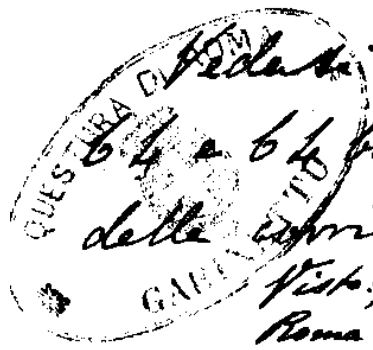 QUESTURA DI ROMA
GABINETTO
Vedasi
64 e 64
delle
Visto,
Roma